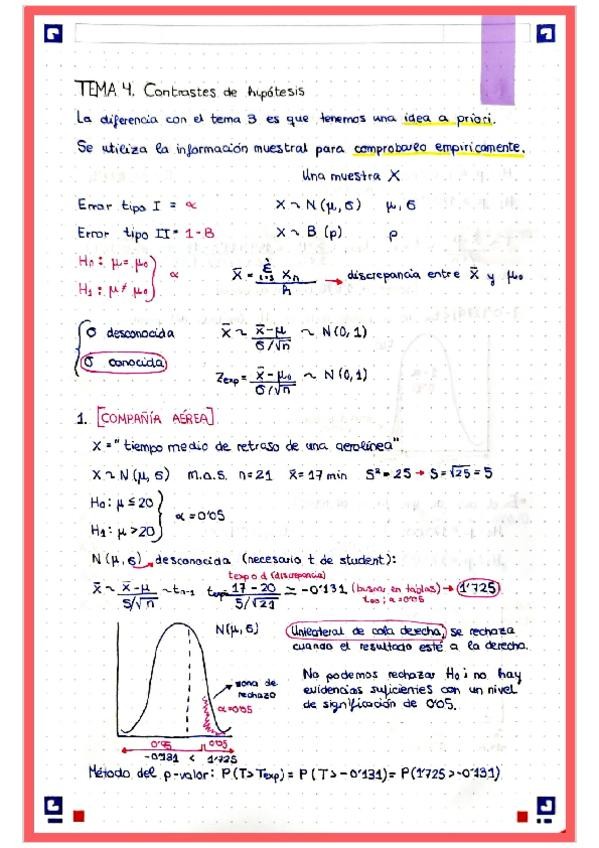 TEMA 4. Contrastes de hipótesis
La diferencia con el tema 3 es que tenemos una idea a priori.
Se utiliza la información muestral para comprobarlo empíricamente.
Una muestra X
Error tipo I = α    X ~ N(μ, σ)    μ, σ
Error tipo II = 1-B    X ~ B(p)    p
H0: μ = μ0
H1: μ ≠ μ0
α    X̄ = Σ i=1 Xn / n → discrepancia entre X̄ y μ0
σ desconocida    X̄ ~ X̄-μ / σ/√n ~ N(0,1)
σ conocida    Zexp = X̄-μ0 / σ/√n ~ N(0,1)
1. [COMPAÑÍA AÉREA]
X = "tiempo medio de retraso de una aerolínea"
X ~ N(μ, σ)  m.a.s.  n=21  x̄=17 min  S² = 25 → S = √25 = 5
H0: μ ≤ 20
H1: μ > 20
α = 0'05
N(μ, σ) → desconocida (necesario t de student):
texp o d (discrepancia)
X̄ ~ X̄-μ / S/√n ~ tn-1  texp = 17-20 / 5/√21 ≃ -0'131 (buscar en tablas) → 1'725
t20; α=0'05
N(μ, σ)
Unilateral de cola derecha, se rechaza
cuando el resultado esté a la derecha.
zona de
rechazo
α=0'05
No podemos rechazar H0; no hay
evidencias suficientes con un nivel
de significación de 0'05.
0'95    0'05
-0'131 < 1'725
Método del p-valor: P(T > Texp) = P(T > -0'131) = P(1'725 > -0'131)